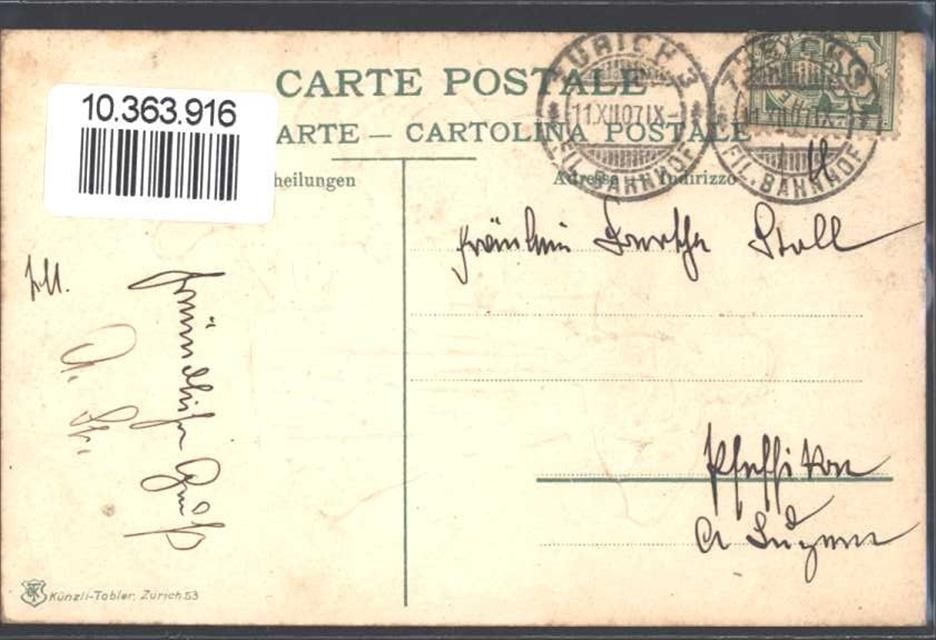 CARTE POSTALE
10.363.916
ARTE – CARTOLINA POSTALE
ZÜRICH 3
11.XII.07.IX-
FIL. BAHNHOF
11.XII.07.IX-
FIL. BAHNHOF
heilungen
Adresse – Indirizzo
Fräulein Stoll
Pfeffikon
Ct Luzern
Freundlichen Gruß
Künzli-Tobler, Zürich 53